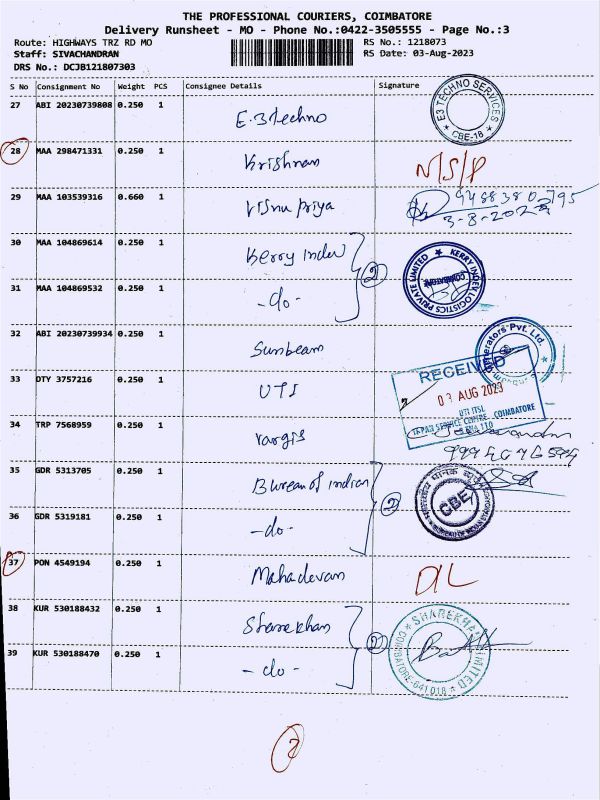 THE PROFESSIONAL COURIERS, COIMBATORE
Delivery Runsheet - MO - Phone No.:0422-3505555 - Page No.:3
Route: HIGHWAYS TRZ RD MO RS No.: 1218073
Staff: SIVACHANDRAN RS Date: 03-Aug-2023
DRS No.: DCJB121807303
S No Consignment No Weight PCS Consignee Details Signature
27 ABI 20230739808 0.250 1 E.3 Techno E3 TECHNO SERVICES CBE-18
28 MAA 298471331 0.250 1 Krishnan N/S/P
29 MAA 103539316 0.660 1 Visnu Priya 9488380795
3-8-2023
30 MAA 104869614 0.250 1 Kerry Indev 2 KERRY INDEV LOGISTICS PRIVATE LIMITED COIMBATORE
31 MAA 104869532 0.250 1 -do-
32 ABI 20230739934 0.250 1 Sunbeam Generators Pvt. Ltd.
33 DTY 3757216 0.250 1 UTI RECEIVED
03 AUG 2023
UTI ITSL
COIMBATORE
34 TRP 7568959 0.250 1 Vargis
35 GDR 5313705 0.250 1 Bureau of Indian 2 CBE
36 GDR 5319181 0.250 1 -do-
37 PON 4549194 0.250 1 Mahadevan DL
38 KUR 530188432 0.250 1 Sharekhan 2 SHAREKHAN LIMITED COIMBATORE-641018
39 KUR 530188470 0.250 1 -do-